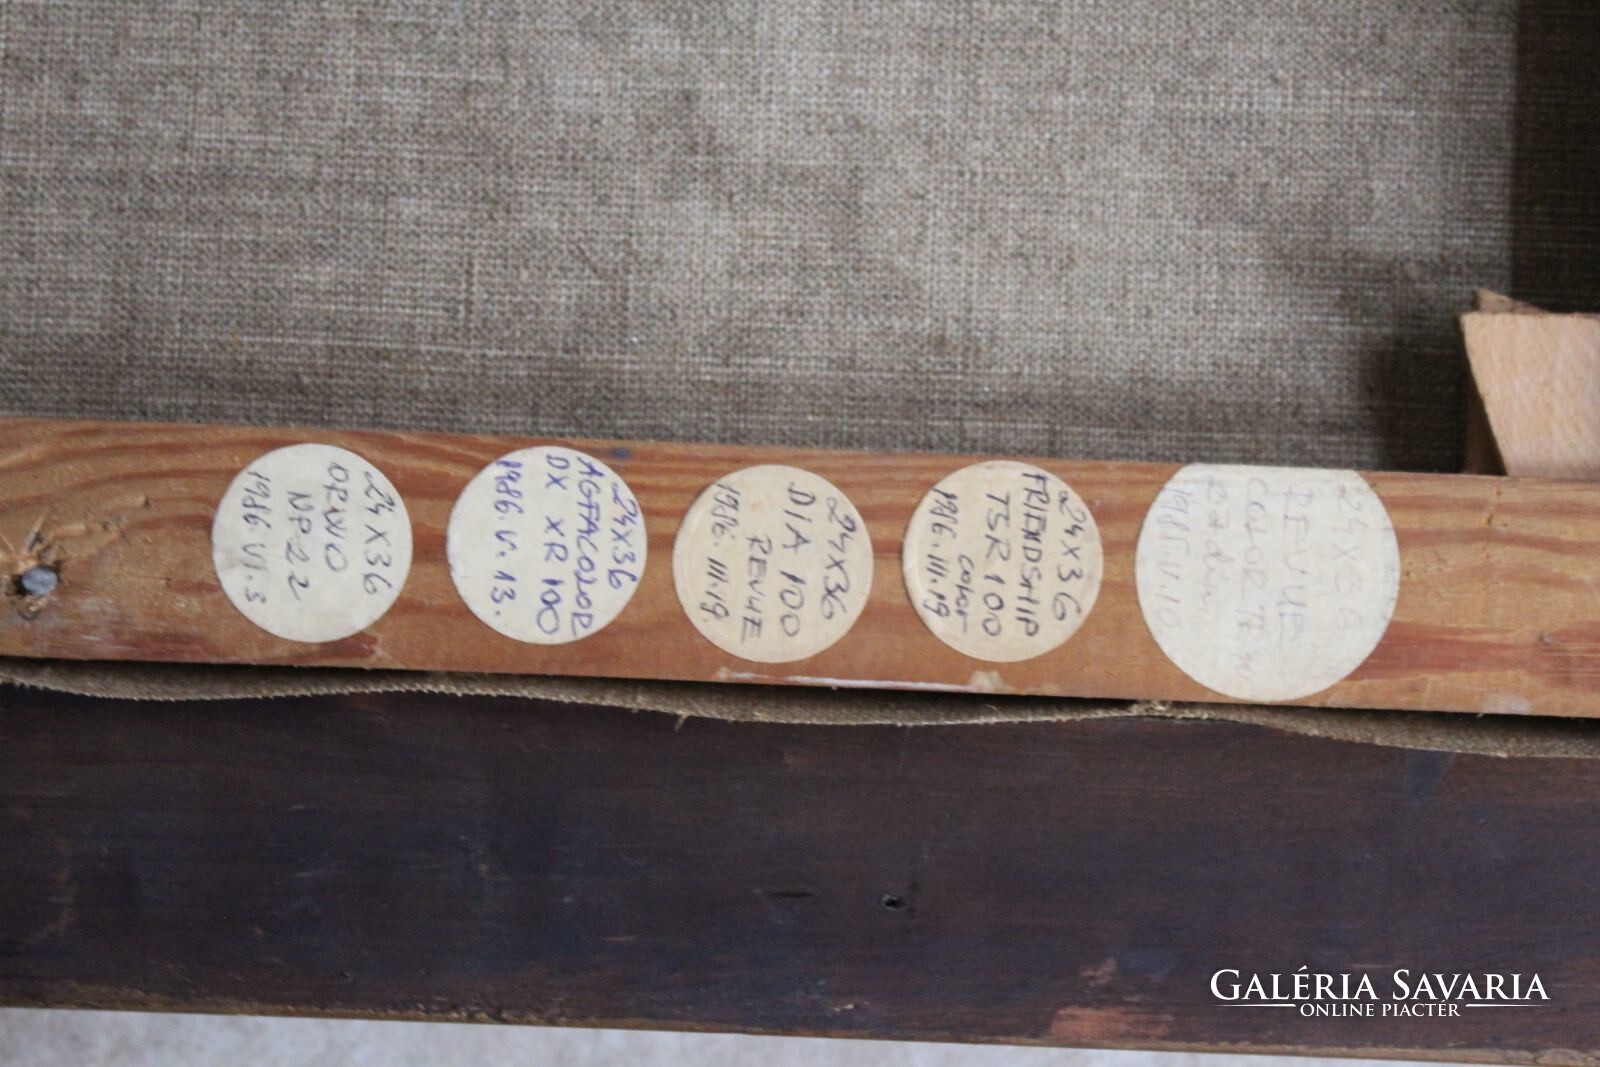 24X36
ORWO
NP22
1986 VI.3
24X36
AGFACOLOR
DX XR100
1986.V.13.
24X36
DIA 100
REVUE
1986.III.19.
24X36
FRIENDSHIP
TSR100
color
1986.III.19
24X36
REVUE
COLOR
1985.V.10
GALÉRIA SAVARIA
ONLINE PIACTÉR